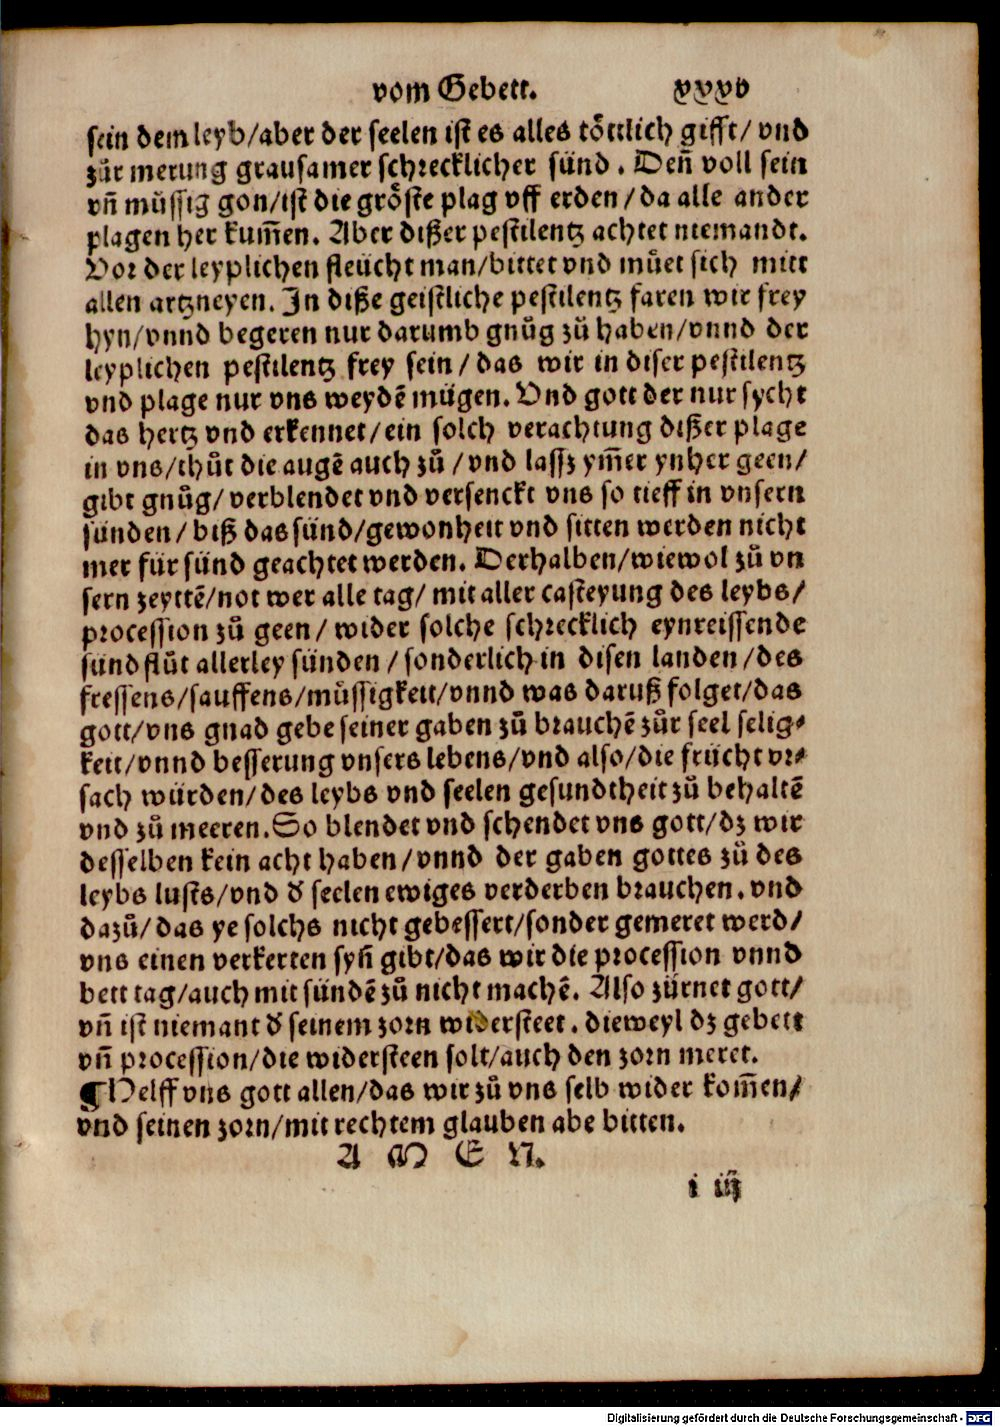 vom Gebett. xxxv
sein dem leyb/aber der seelen ist es alles toͤttlich gifft/ vnd
zůr merung grausamer schrecklicher sünd . Deñ voll sein
vñ müssig gon/ist die groͤste plag vff erden/da alle ander
plagen her kum̃en. Aber dißer pestilentz achtet niemandt.
Vor der leyplichen fleücht man/bittet vnd muͤet sich mitt
allen artzneyen. In diße geistliche pestilentz faren wir frey
hyn/vnnd begeren nur darumb gnůg zů haben/vnnd der
leyplichen pestilentz frey sein/das wir in diser pestilentz
vnd plage nur vns weydẽ mügen. Vnd gott der nur sycht
das hertz vnd erkennet/ein solch verachtung dißer plage
in vns/thůt die augẽ auch zů/vnd lassz ym̃er ynher geen/
gibt gnůg/verblendet vnd versenckt vns so tieff in vnsern
sünden/biß das sünd/gewonheit vnd sitten werden nicht
mer für sünd geachtet werden. Derhalben/wiewol zů vn
sern zeyttẽ/not wer alle tag/ mit aller casteyung des leybs/
procession zů geen/ wider solche schrecklich eynreissende
sünd flůt allerley sünden/sonderlich in disen landen/des
fressens/sauffens/müssigkeit/vnnd was daruß folget/das
gott/vns gnad gebe seiner gaben zů brauchẽ zůr seel selig⸗
keit/vnnd besserung vnsers lebens/vnd also/die frücht vr⸗
sach würden/des leybs vnd seelen gesundtheit zů behaltẽ
vnd zů meeren.So blendet vnd schendet vns gott/dz wir
desselben kein acht haben/vnnd der gaben gottes zů des
leybs lusts/vnd d̕ seelen ewiges verderben brauchen. vnd
dazů/das ye solchs nicht gebessert/sonder gemeret werd/
vns einen verkerten syñ gibt/das wir die procession vnnd
bett tag/auch mit sündẽ zů nicht machẽ. Also zürnet gott/
vñ ist niemant d̕ seinem zorn widersteet. dieweyl dz gebett
vñ procession/die widersteen solt/auch den zorn meret.
¶Helff vns gott allen/das wir zů vns selb wider kom̃en/
vnd seinen zorn/mit rechtem glauben abe bitten.
A M E N.
i iij
Digitalisierung gefördert durch die Deutsche Forschungsgemeinschaft - DFG